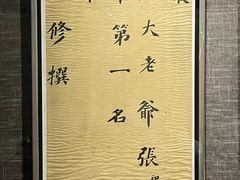 大老爺張
第一名
修撰